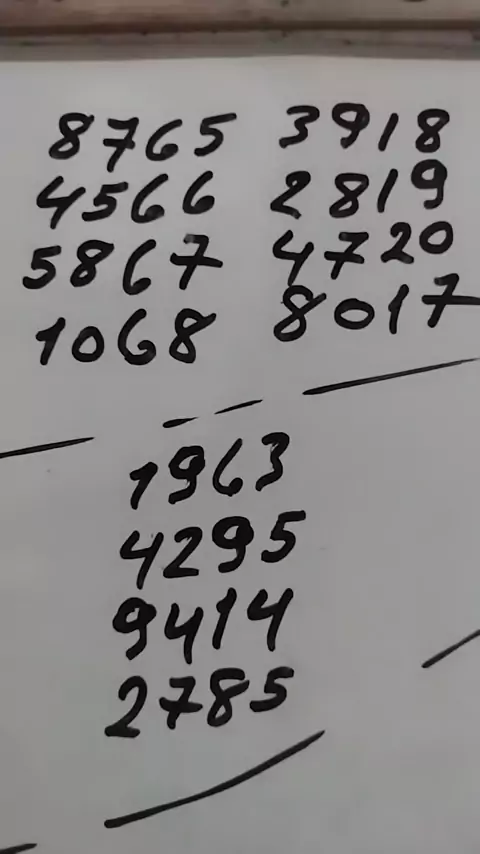 8765 3918
4566 2819
5867 4720
1068 8017
1963
4295
9414
2785